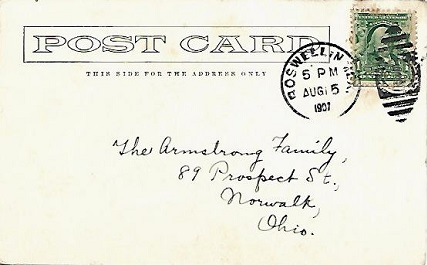 POST CARD
THIS SIDE FOR THE ADDRESS ONLY
ROSWELL, N. MEX.
5 PM
AUG 15
1907
The Armstrong Family,
89 Prospect St.,
Norwalk,
Ohio.